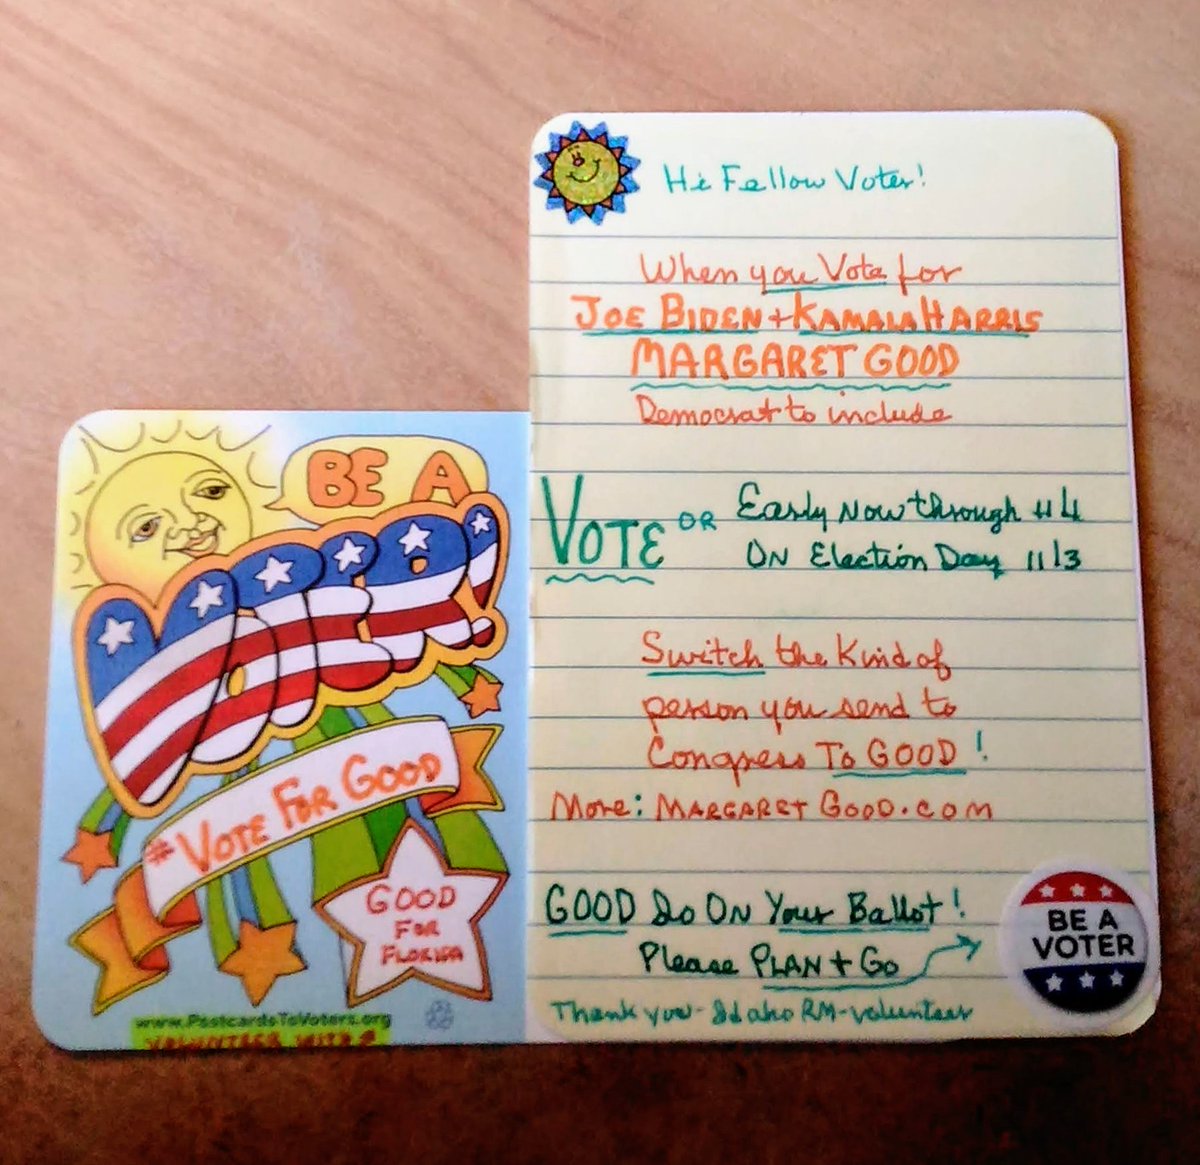 BE A
VOTER!
#VOTE FOR GOOD
GOOD
FOR
FLORIDA
www.PostcardsToVoters.org
VOLUNTEER WITH
Hi Fellow Voter!
When you Vote for
JOE BIDEN + KAMALA HARRIS
MARGARET GOOD
Democrat to include
VOTE OR Early Now through 11/1
ON Election Day 11/3
Switch the Kind of
person you send to
Congress To GOOD!
More: MARGARET GOOD.COM
GOOD Is ON Your Ballot!
Please PLAN + Go
BE A
VOTER
Thank you - Idaho RM-volunteer